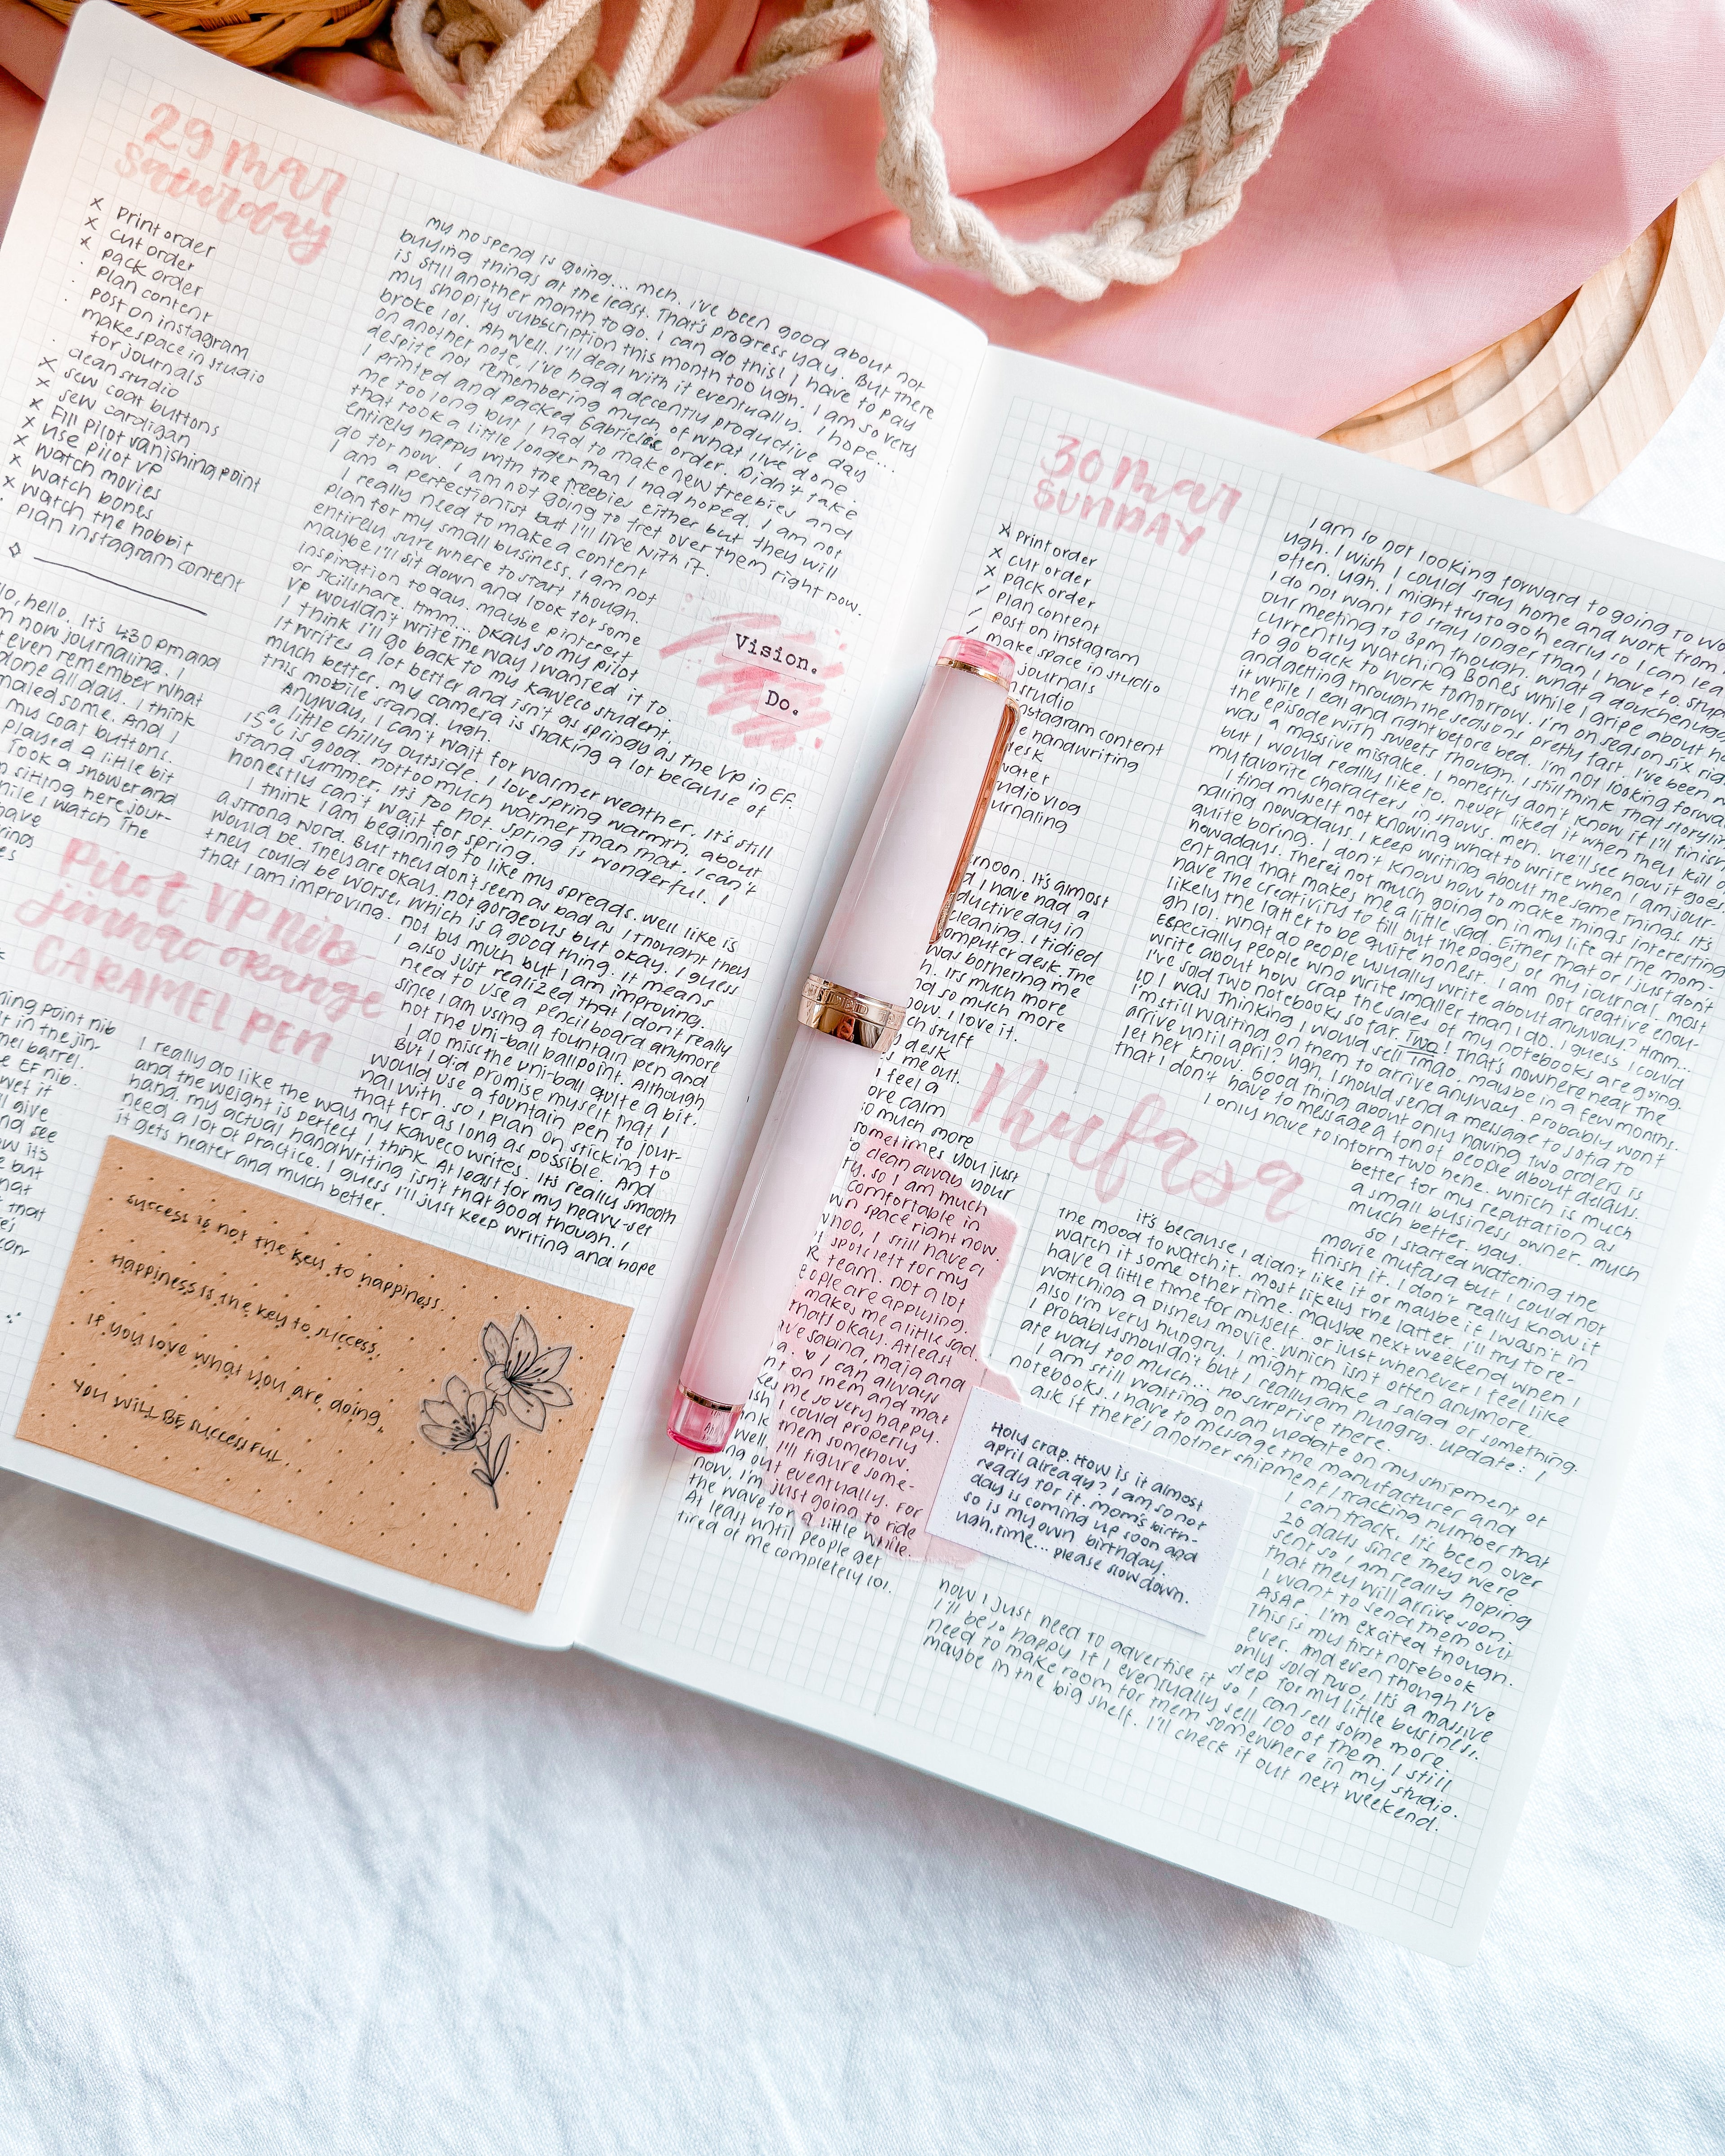 29 mar
saturday
x print order
x cut order
x pack order
· plan content
· post on instagram
make space in studio
for journals
· clean studio
x sew coat buttons
x sew cardigan
x Fill pilot vanishing point
x use pilot VP
x watch movies
x watch bones
x watch the hobbit
· plan instagram content
hello. It's 4:30 pm and
now journaling. I
even remember what
done all day. I think
some. And I
my coat buttons.
played a little bit
Took a shower and
sitting here jour-
while I watch The
my no spend is going... meh. I've been good about not
buying things at the least. That's progress yay. But there
is still another month to go. I can do this! I have to pay
my shopify subscription this month too ugh. I am so very
broke lol. Ah well. I'll deal with it eventually. I hope...
on another note, I've had a decently productive day
despite not remembering much of what I've done.
I printed and packed Gabriel's order. Didn't take
me too long but I had to make new freebies and
that took a little longer than I had hoped. I am not
entirely happy with the freebies either but they will
do for now. I am not going to fret over them right now.
I am a perfectionist but I'll live with it.
I really need to make a content
plan for my small business. I am not
entirely sure where to start though.
maybe I'll sit down and look for some
inspiration today. maybe pinterest
or skillshare. Hmm... Okay so my pilot
VP wouldn't write the way I wanted it to.
I think I'll go back to my kaweco student.
It writes a lot better and isn't as springy as the VP in EF.
much better. my camera is shaking a lot because of
this mobile stand. ugh.
Anyway, I can't wait for warmer weather. It's still
a little chilly outside. I love spring warmth, about
15°C is good. not too much warmer than that. I can't
stand summer. It's too hot. Spring is wonderful. I
honestly can't wait for spring.
I think I am beginning to like my spreads. Well like is
a strong word. But they don't seem as bad as I thought they
would be. They are okay. not gorgeous but okay. I guess
they could be worse, which is a good thing. It means
that I am improving. not by much but I am improving.
Vision.
Do.
Pilot VP Nib
jinhao orange
CARAMEL PEN
point nib
in the jin-
barrel.
EF nib.
I also just realized that I don't really
need to use a pencil board anymore
since I am using a fountain pen and
not the uni-ball ballpoint. Although
I do miss the uni-ball quite a bit.
But I did promise myself that I
would use a fountain pen to jour-
nal with. so I plan on sticking to
that for as long as possible. And
I really do like the way my kaweco writes. It's really smooth
and the weight is perfect I think. At least for my heavy-set
hand. my actual handwriting isn't that good though. I
need a lot of practice. I guess I'll just keep writing and hope
it gets neater and much better.
success is not the key to happiness.
Happiness is the key to success.
If you love what you are doing,
you WILL BE successful...
30 mar
SUNDAY
x print order
x cut order
x pack order
/ plan content
/ post on instagram
/ make space in studio
journals
studio
instagram content
handwriting
desk
water
studio vlog
journaling
It's almost
I have had a
productive day in
cleaning. I tidied
computer desk. The
was bothering me
It's much more
and so much more
now. I love it.
stuff
desk
me out.
feel a
more calm
so much more
sometimes you just
clean away your
so I am much
comfortable in
own space right now.
I still have a
spots left for my
team. not a lot
people are applying.
makes me a little sad.
that's okay. At least
have sabina, maja and
♥ I can always
on them and that
makes me so very happy.
I could properly
thank them somehow.
well. I'll figure some-
thing out eventually. For
now, I'm just going to ride
the wave for a little while.
At least until people get
tired of me completely lol.
I am so not looking forward to going to
ugh. I wish I could stay home and work from
often. ugh. I might try to go in early so I can
I do not want to stay longer than I have to.
our meeting to 3pm though. what a
currently watching Bones while I gripe about
to go back to work tomorrow. I'm on season six
and getting through the seasons pretty fast. I've been
it while I eat and right before bed. I'm not looking
the episode with sweets though. I still think that
was a massive mistake. I honestly don't know if I'll finish
but I would really like to. never liked it when they kill
my favorite characters in shows. meh. we'll see how it goes
I find myself not knowing what to write when I am jour-
naling nowadays. I keep writing about the same things. It's
quite boring. I don't know how to make things interesting
nowadays. There's not much going on in my life at the mom-
ent and that makes me a little sad. Either that or I just don't
have the creativity to fill out the pages of my journal. most
likely the latter to be quite honest. I am not creative enou-
gh lol. what do people usually write about anyway? Hmm...
Especially people who write smaller than I do. I guess I could
write about how crap the sales of my notebooks are going.
I've sold two notebooks so far. Two! That's nowhere near the
10 I was thinking I would sell lmao. maybe in a few months.
I'm still waiting on them to arrive anyway. Probably won't
arrive until april? Ugh, I should send a message to sofia to
let her know. Good thing about only having two orders is
that I don't have to message a ton of people about delays.
I only have to inform two hehe. which is much
better for my reputation as
a small business owner. much
much better. yay.
Mufasa
so I started watching the
movie mufasa but I could not
finish it. I don't really know if
it's because I didn't like it or maybe if I wasn't in
the mood to watch it. most likely the latter. I'll try to re-
watch it some other time. maybe next weekend when I
have a little time for myself. or just whenever I feel like
watching a Disney movie. which isn't often anymore.
Also I'm very hungry. I might make a salad or something.
I probably shouldn't but I really am hungry. update: I
are way too much... no surprise there.
I am still waiting on an update on my shipment of
notebooks. I have to message the manufacturer and
ask if there's another shipment/tracking number that
I can track. It's been over
20 days since they were
sent so I am really hoping
that they will arrive soon.
I want to send them out
ASAP. I'm excited though.
This is my first notebook
ever. And even though I've
only sold two, It's a massive
step for my little business.
Holy crap. How is it almost
april already? I am so not
ready for it. mom's birth-
day is coming up soon and
so is my own birthday.
ugh, time... please slow down.
now I just need to advertise it so I can sell some more.
I'll be so happy if I eventually sell 100 of them. I still
need to make room for them somewhere in my studio.
maybe in the big shelf. I'll check it out next weekend.